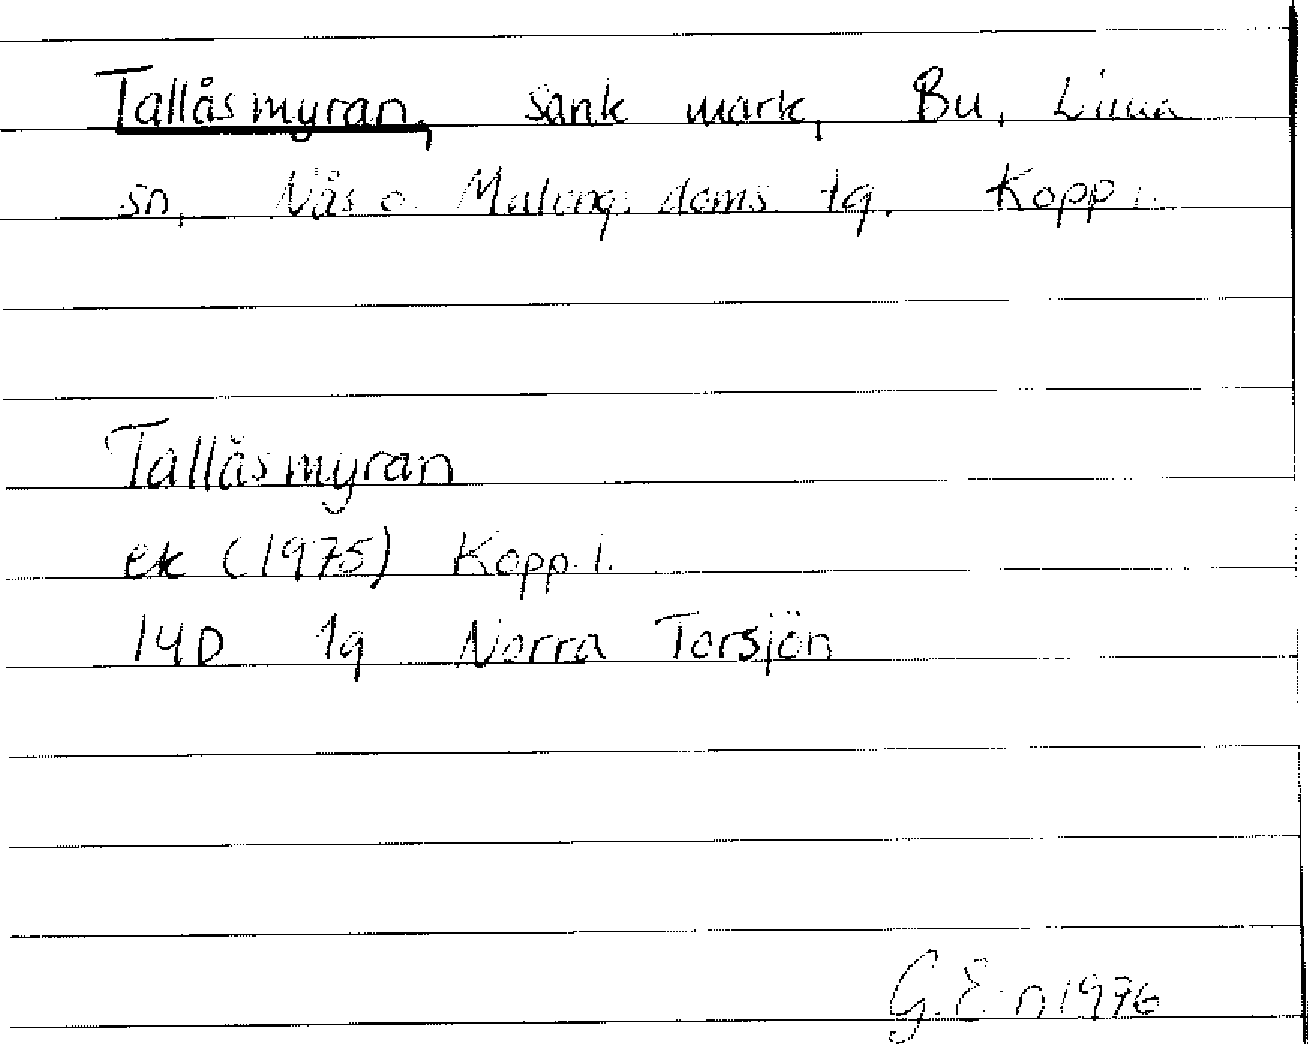 Tallåsmyran, sank mark, Bu, Lima
sn, Nås o. Malungs doms. tg. Kopp l.
Tallåsmyran
ek (1975) Kopp. l.
14D 1g Norra Torsjön
G. E-n 1976